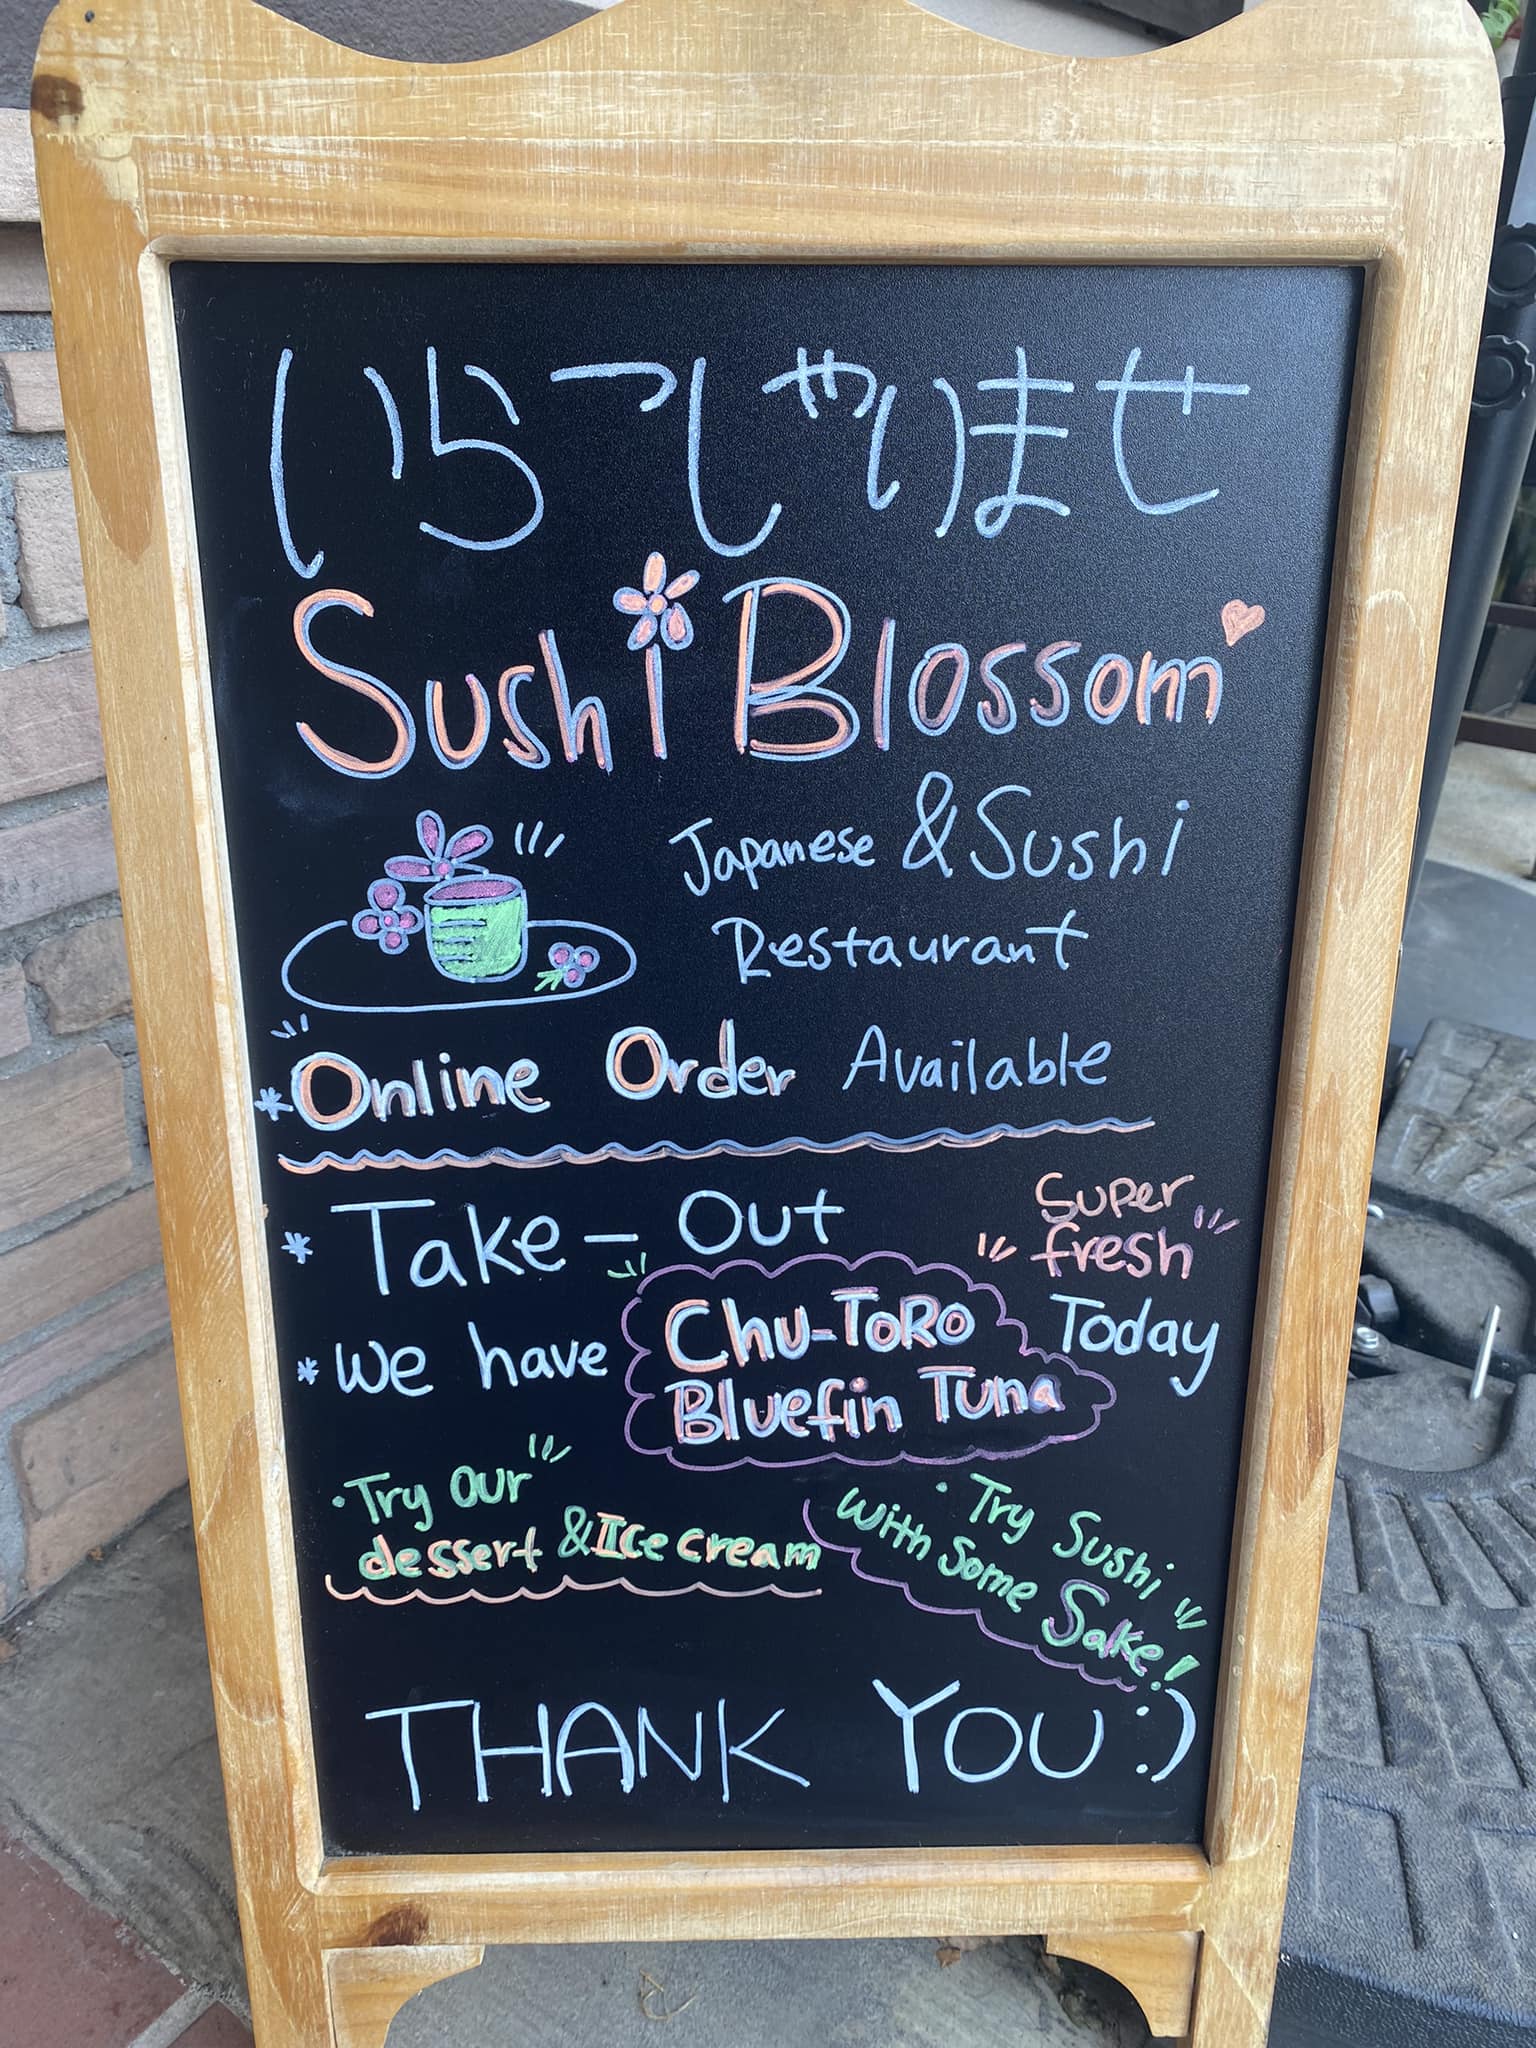 いらっしゃいませ
Sushi Blossom
Japanese & Sushi
Restaurant
* Online Order Available
* Take - Out
* We have Chu-ToRo
Bluefin Tuna
Super
fresh
Today
• Try our
dessert & Ice cream
• Try Sushi
with some Sake!
THANK YOU :)